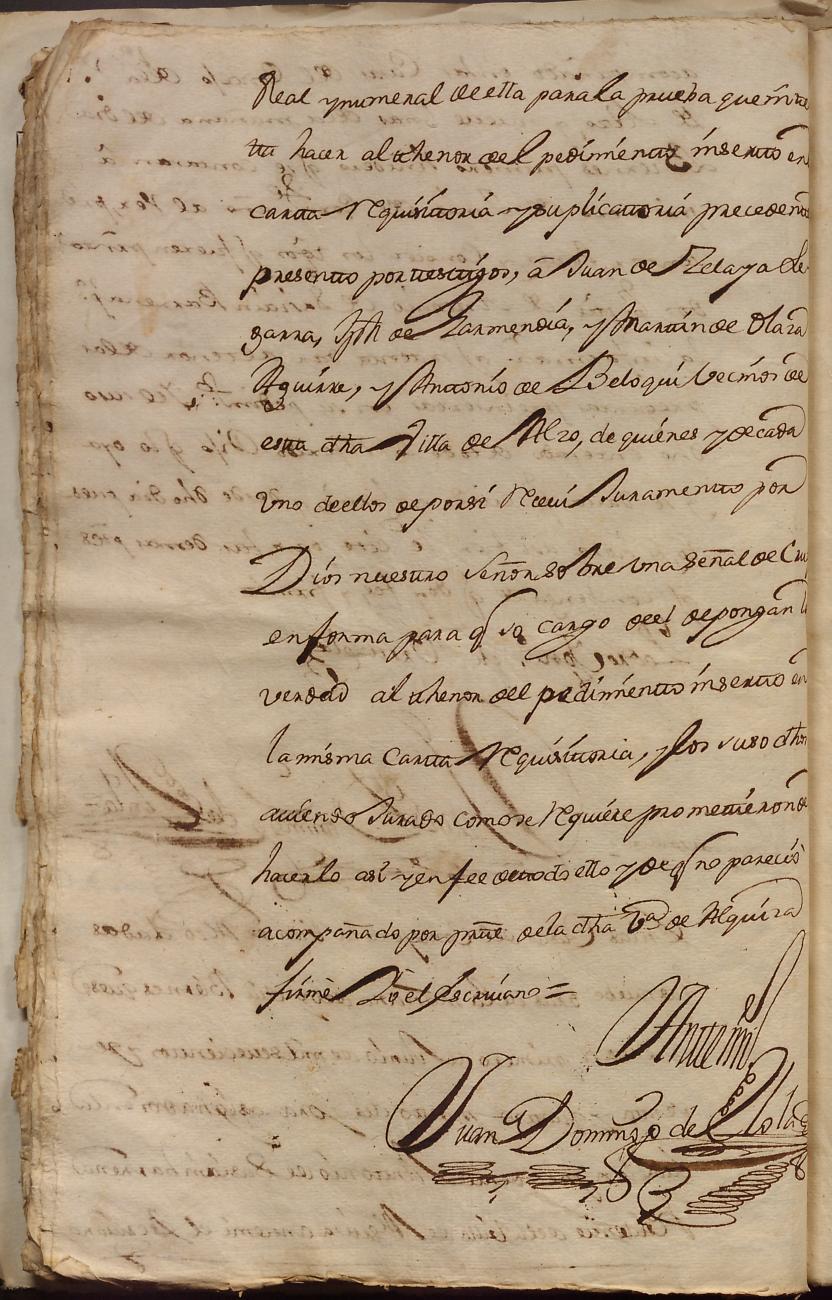 Real y numeral de ella para la prueba que
hacer al thenor del pedimiento inserto en
carta requisitoria y suplicattoria precedente
presento por testigos, a Juan de Zelaya
garra, Jph de Garmendia, y Martin de Olaza
Aguirre, y Antonio de Beloqui vecinos de
esta dha Villa de Alzo, de quienes y de cada
vno de ellos de por si Reciui Juramentto por
Dios nuestro Señor sobre vna señal de Cru
en forma para q so cargo de el depongan l
verdad al thenor del pedimiento inserto en
la misma Carta Requisitoria, y los suso dhos
auiendo Jurado como se Requiere prometieron de
hacerlo asi y en fee de todo ello y de q no parecio
acompañado por de la dha Va de Alquiza
firmè Yo el escriuano =
Antemi
Juan Domingo de